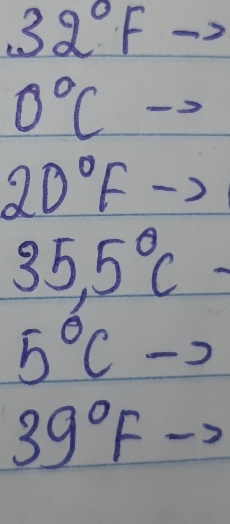 32°F ->
0°C ->
20°F ->
35,5°C -
5°C ->
39°F ->